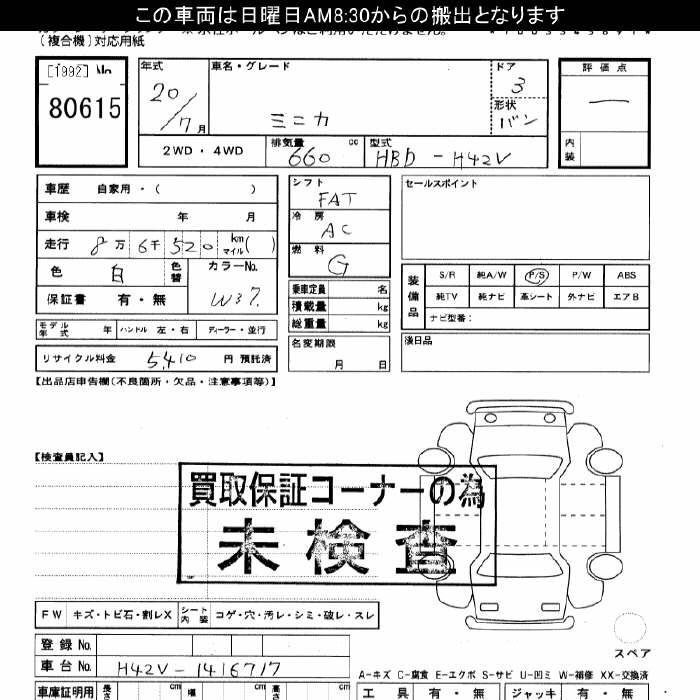 この車両は日曜日AM8:30からの搬出となります
(複合機)対応用紙
[1992] No
80615
年式
20/7月
車名・グレード
ミニカ
ドア
3
形状
バン
評価点
―
内装
2WD・4WD
排気量
660 cc
型式
HBD-H42V
車歴 自家用・( )
車検 年 月
走行 8万 6千 520 km マイル( )
色 白 色替
カラーNo.
W37.
保証書 有・無
モデル年式 年 ハンドル 左・右 ディーラー・並行
リサイクル料金 5,410 円 預託済
シフト
FAT
冷房
AC
燃料
G
乗車定員 名
積載量 kg
総重量 kg
名変期限
月 日
セールスポイント
装備品
S/R 純A/W P/S P/W ABS
純TV 純ナビ 革シート 外ナビ エアB
ナビ型番:
欠品
【出品店申告欄(不良箇所・欠品・注意事項等)】
【検査員記入】
買取保証コーナーの為
未検査
FW キズ・トビ石・割レX シート内装 コゲ・穴・汚レ・シミ・破レ・スレ
スペア
登録No.
車台No. H42V-1416717
A-キズ C-腐食 E-エクボ S-サビ U-凹ミ W-補修 XX-交換済
車庫証明用 長さ cm 幅 cm 高さ cm
工具 有・無 ジャッキ 有・無